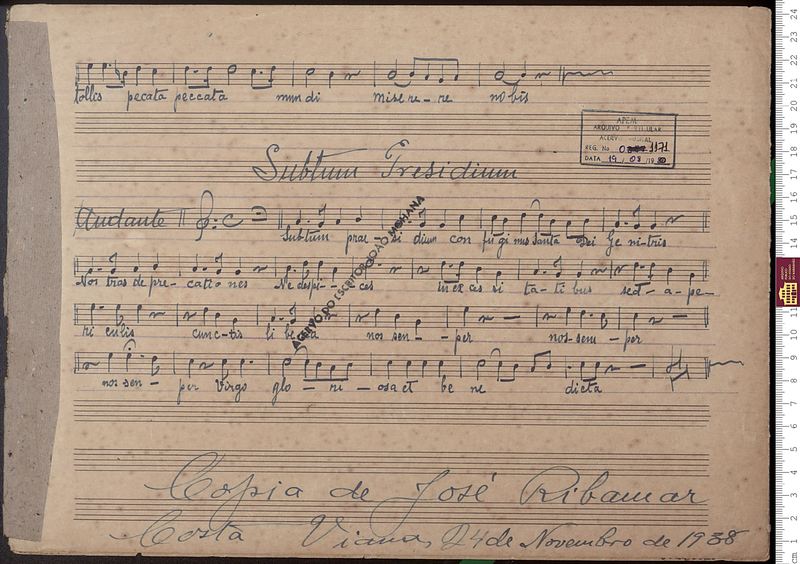 tollis pecata peccata mundi misere-re nobis
APEM
ACERVO
REG. No 1171
DATA 19 / 08 /
Subtum Presidium
Andante
Subtum prai-si dium con fugimus santa Dei Ge ni-tris
Nos tras de pre-catio nes Ne despi-ces in ex cis si ta-ti bus sed-a-pe-
ri culis cunc-tis li be-ra nos sen-per nos-sem-per
nos-sen-per Virgo glo-ri-osa et be ne dicta
ACERVO DO ESCRITOR JOÃO MOHANA
Copia de José Ribamar
Costa Viana, 24 de Novembro de 1938